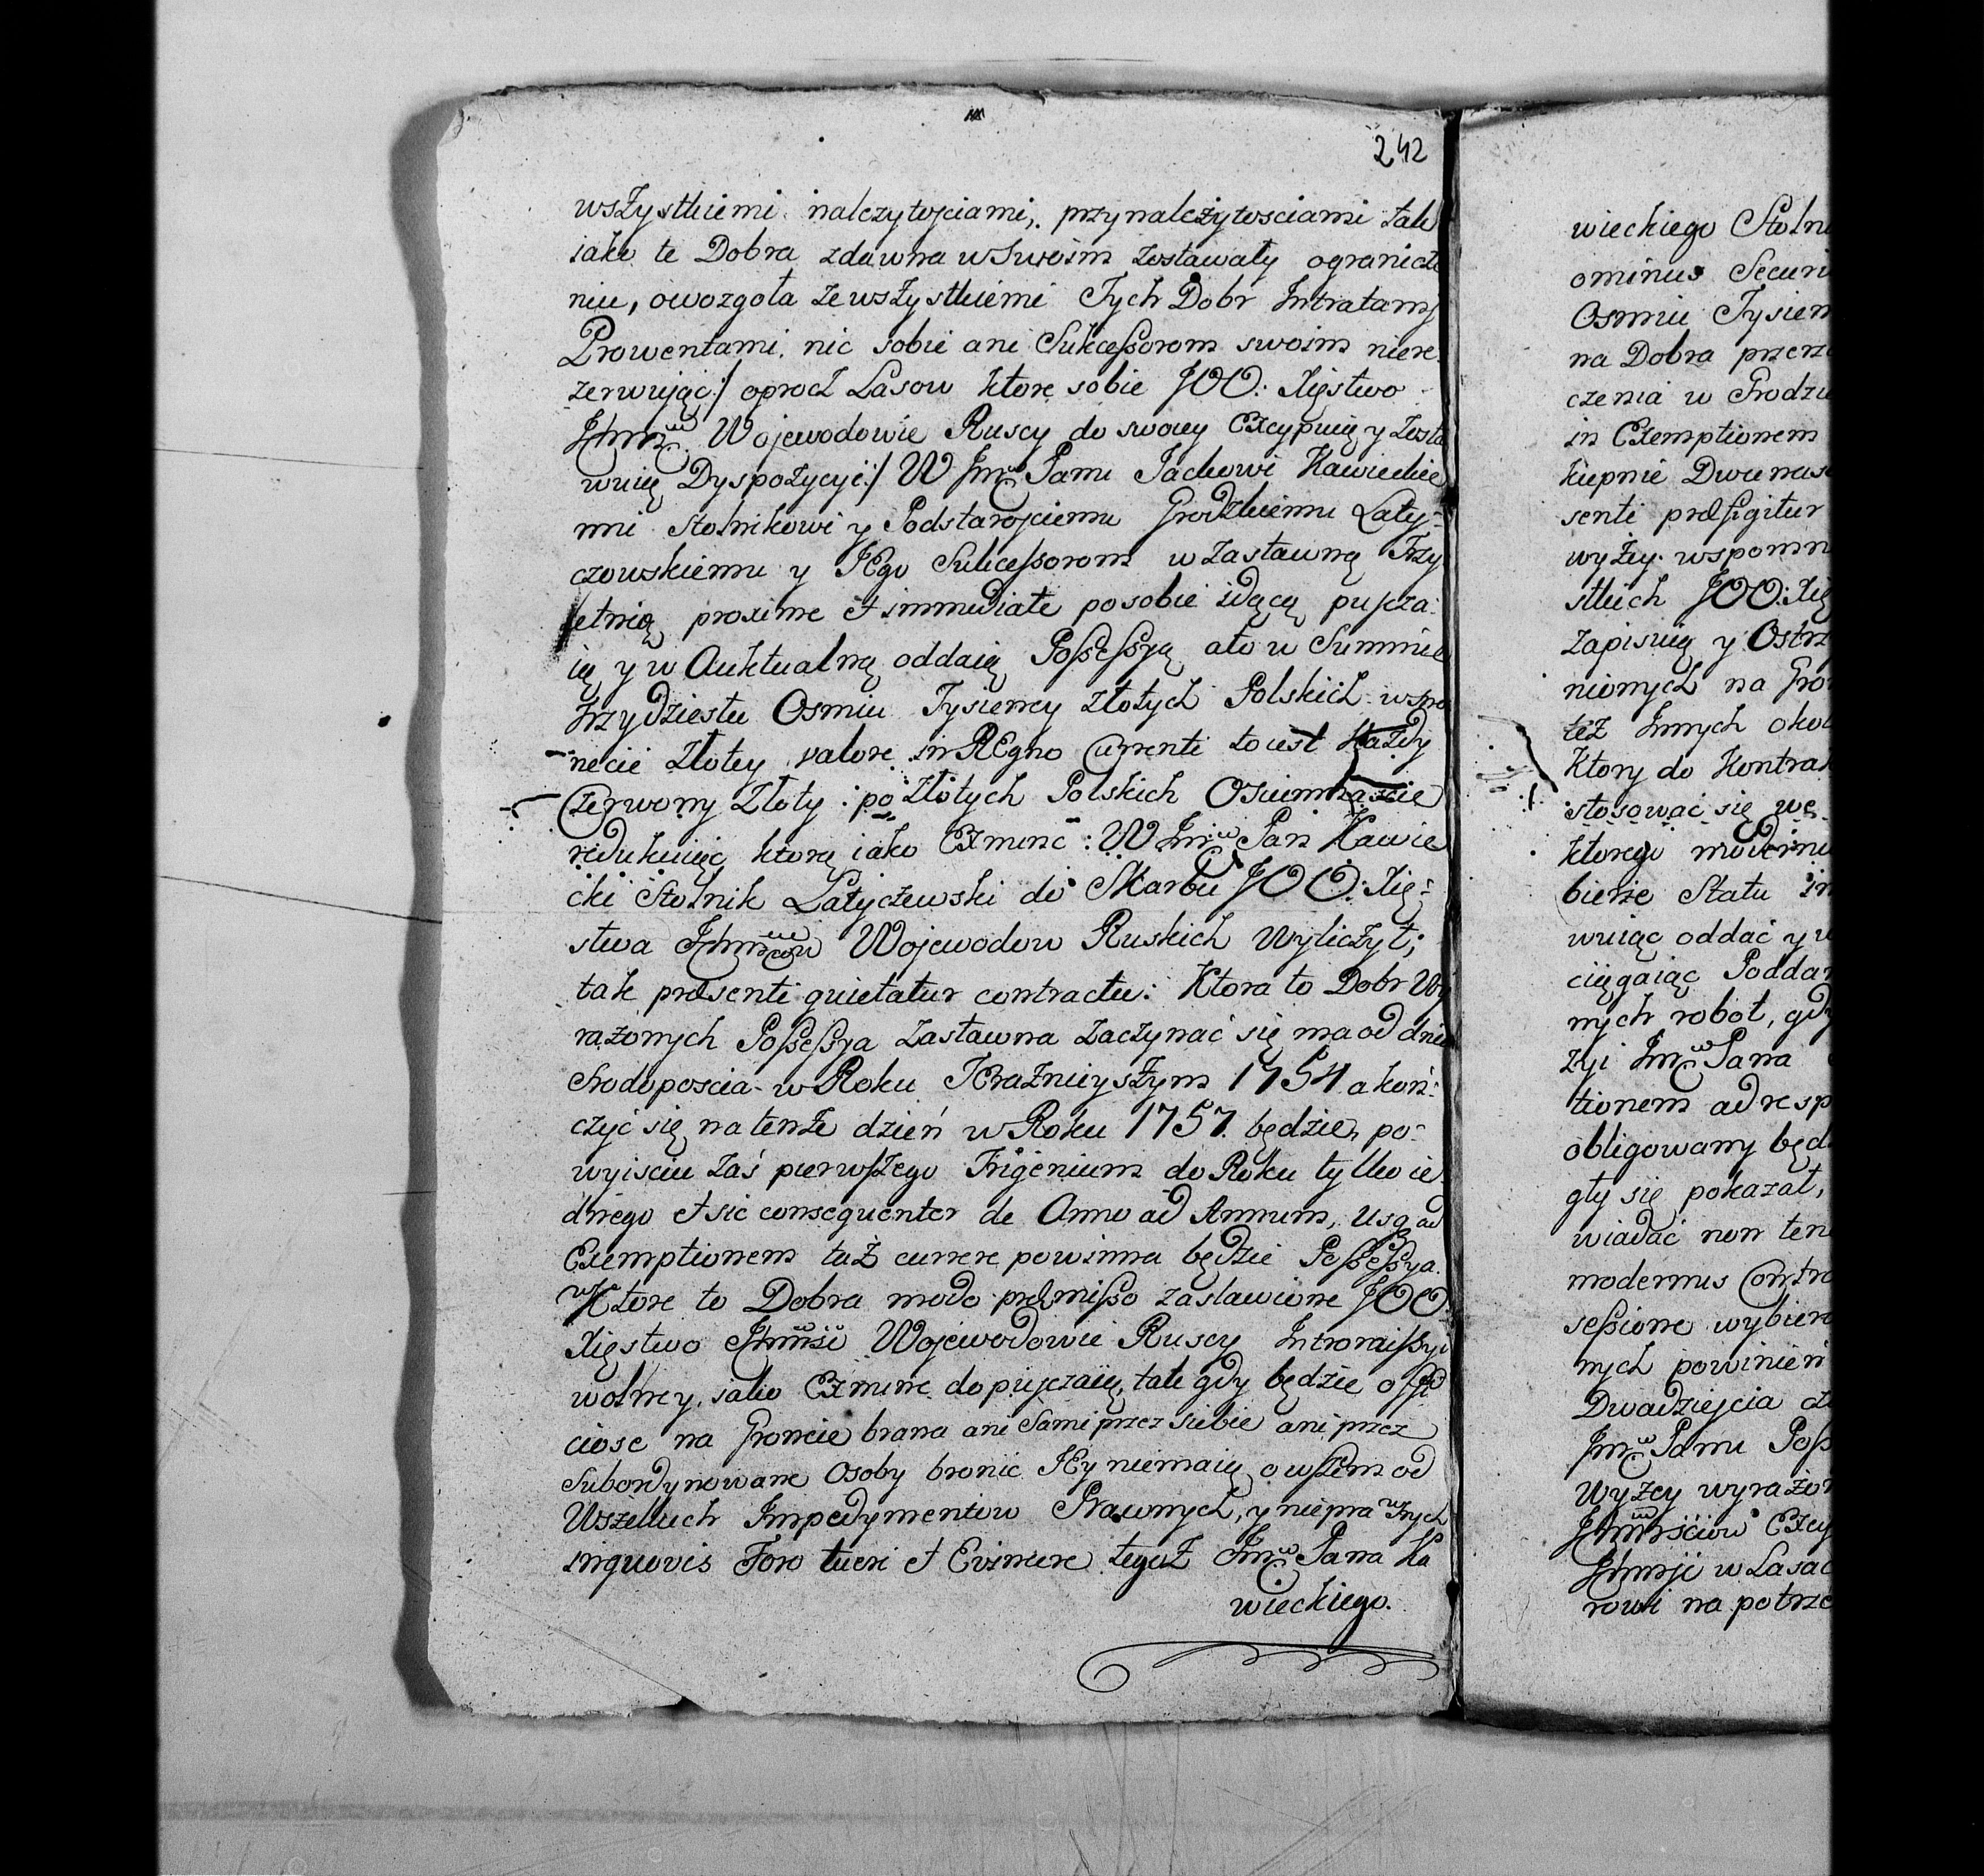 242
wszystkiemi należytościami, przynależytosciami tak
iako te Dobra zdawna w Swoim zostawały ogranicze
niu, owozgoła ze wszystkiemi Tych Dobr Intratamy
Prowentami, nic sobie ani Sukcessorom swoim niere
zerwuiąc:/ oprocz Lasow ktore sobie JOO: Xięstwo
Ichmć Wojewodowie Ruscy do swoiey Excypuią y zosta
wuią Dyspozycyi:/ W Jmć Panu Jackowi Kawieckie
mu Stolnikowi y Podstarościemu Grodzkiemu Laty-
czowskiemu y JEgo Sukcessorom w Zastawną Trzy
letnią proxime et immediate posobie idącą puszcza
ią y w Auktualną oddaią Possessyą a to w Summie
trzydziestu Osmiu Tysiency złotych Polskich w mo
necie złotey valore in REgno Currenti to iest każdy
Czerwony złoty po złotych Polskich Osiemnascie
redukuiąc ktorą iako Exnunc W Jmć Pan Kawie
cki Stolnik Latyczewski do Skarbu JOO: Xię-
stwa Ichmciow Wojewodow Ruskich wyliczył;
tak præsenti quietatur contractu: Ktora to Dobr Wy
rażonych Possessya zastawna zaczynać się ma od dnia
Srodoposcia w Roku TEraznieyszym 1754 a koń-
czyć się na tenże dzień w Roku 1757. będzie, po
wyisciu zaś pierwszego Trigenium do Roku tylko ie
dnego et sic consequenter de Anno ad Annum, usq ad
Exemptionem taż currere powinna będzie Possessya.
Ktore to Dobra modo præmisso zastawione JOO
Xięstwo Ichmść Wojewodowie Ruscy Intromissyi
wolney, iako Exnunc dopuszczaią, tak gdy będzie
na Groncie brana ani Sami przez siebie ani przez
Subordynowane Osoby bronić JEy niemaią owszem od
Wszelkich Impedymentow Prawnych, y nieprawnych
inquovis Foro tueri et Evincere tegoż Jmć Pana Ka
wieckiego.
wieckiego Stolni
ominus Securi
Osmiu Tysien
na Dobra przerze
czenia w Grodzie
in Exemptionem
kupnie Dwunas
senti præfigitur
wyżey wspomn
stkich JOO: Xię
zapisuią y Ostrz
nionych na Gro
też Innych oko
Ktory do Kontrak
stosować się we
ktorego moderni
bierze Statu in
wuiąc oddać y w
ciągaiąc Poddan
nych robot, gdy
zyi Jmć Pana
tionem ad resp
obligowany będ
gły się pokazał,
wiadać non ten
modernus Contra
sessione wybiera
nych powinien
Dwadzieścia
Jmć Panu Poss
Wyżey wyrażon
Ichmściow Excy
Ichmści w Lasac
rowi na potrze